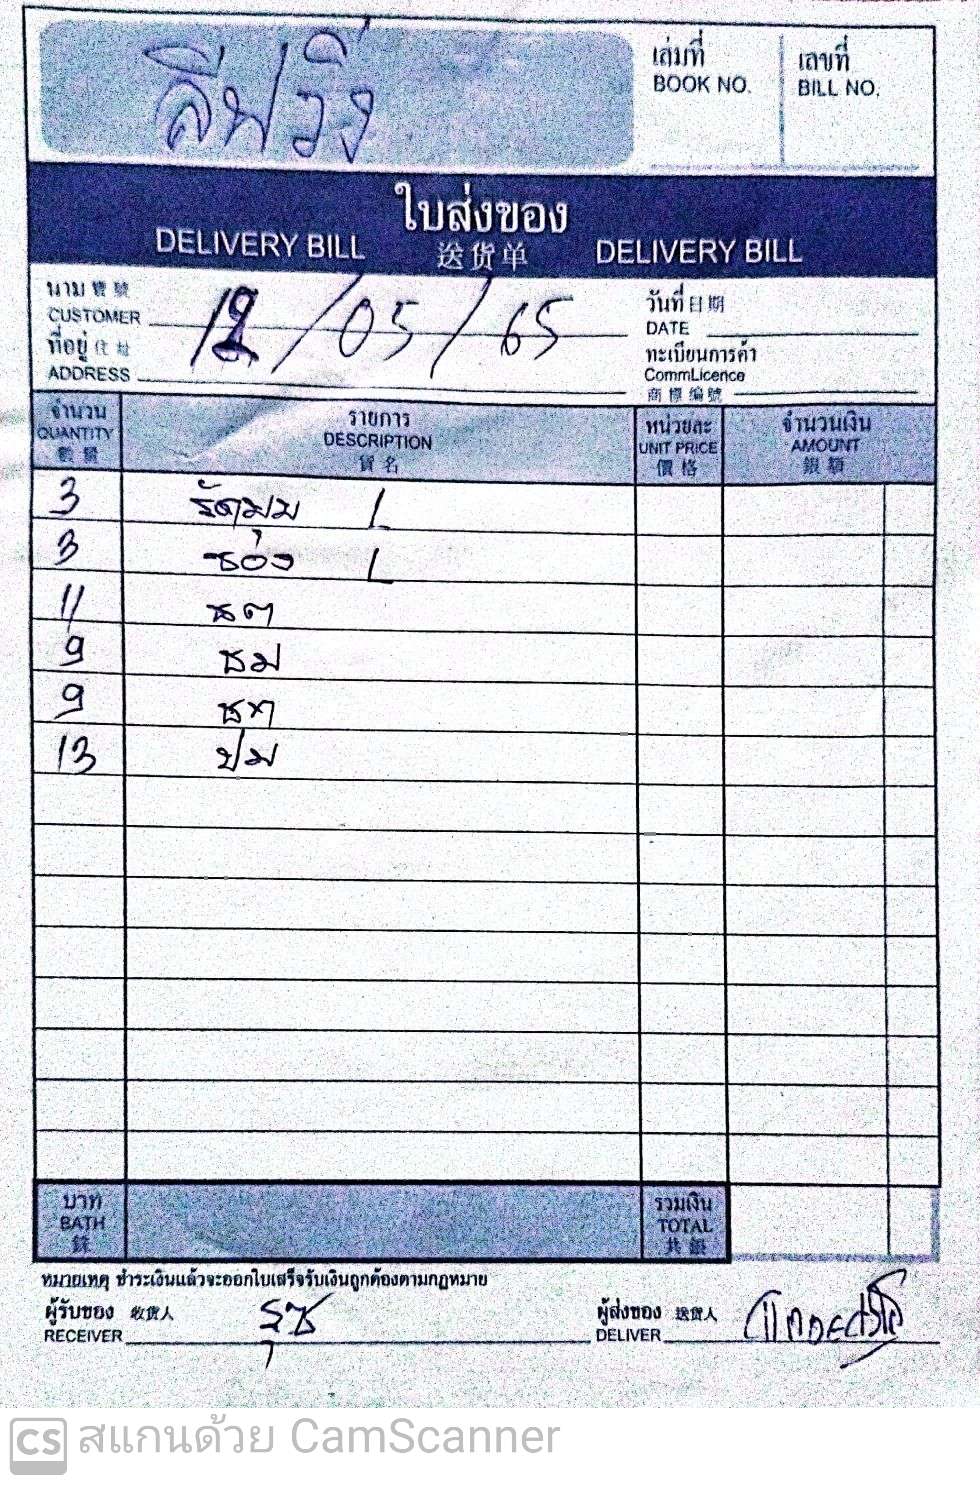 ลีฟวิ่ง
เล่มที่
BOOK NO.
เลขที่
BILL NO.
ใบส่งของ
DELIVERY BILL 送货单 DELIVERY BILL
นาม 寶號
CUSTOMER
12/05/65
วันที่ 日期
DATE
ที่อยู่ 住址
ADDRESS
ทะเบียนการค้า
CommLicence
商標編號
จำนวน รายการ หน่วยละ จำนวนเงิน
QUANTITY DESCRIPTION UNIT PRICE AMOUNT
數量 貨名 價格 銀額
3 รัดมม L
3 ซอง L
11 ชต
9 ชม
9 ชท
13 ปม
บาท รวมเงิน
BATH TOTAL
銖 共銀
หมายเหตุ ชำระเงินแล้วจะออกใบเสร็จรับเงินถูกต้องตามกฎหมาย
ผู้รับของ 收貨人
RECEIVER
ผู้ส่งของ 送貨人
DELIVER
CS สแกนด้วย CamScanner